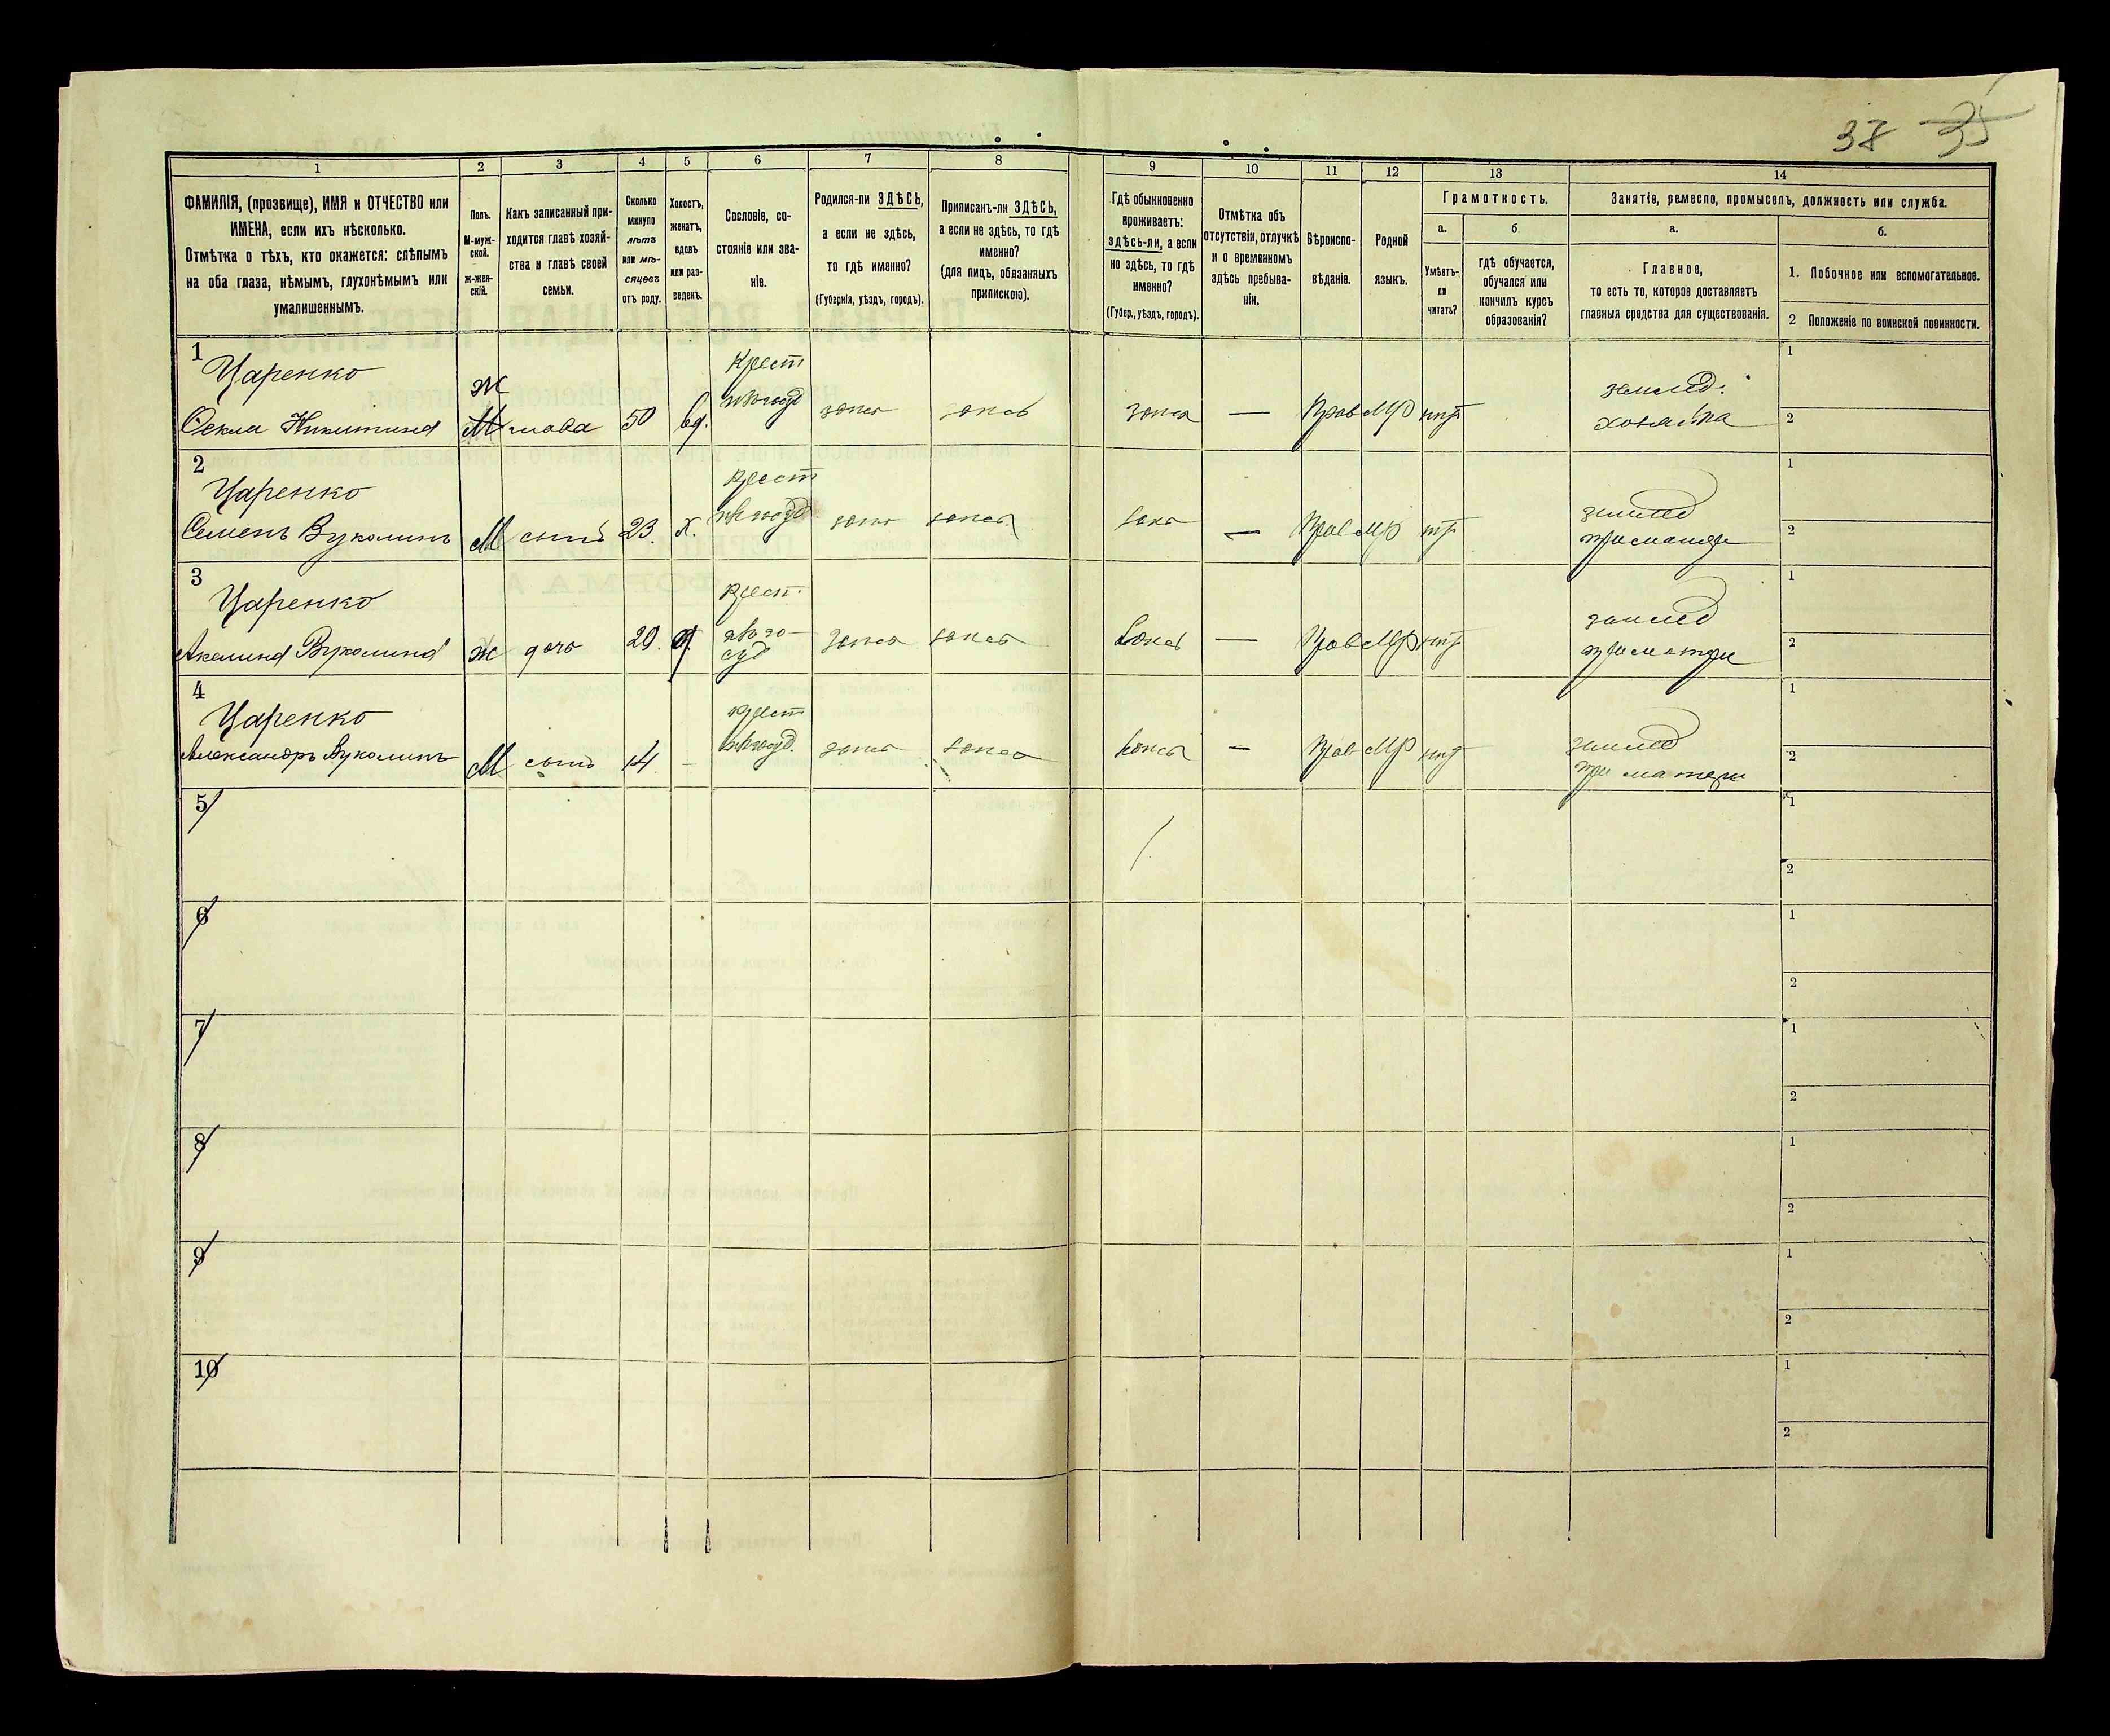 38 35
1
2
3
4
5
6
7
8
9
10
11
12
13
14
ФАМИЛІЯ, (прозвище), ИМЯ и ОТЧЕСТВО или
ИМЕНА, если ихъ нѣсколько.
Отмѣтка о тѣхъ, кто окажется: слѣпымъ
на оба глаза, нѣмымъ, глухонѣмымъ или
умалишеннымъ.
Полъ.
М-муж-
ской.
ж-жен-
скій.
Какъ записанный при-
ходится главѣ хозяй-
ства и главѣ своей
семьи.
Сколько
минуло
лѣтъ
или мѣ-
сяцевъ
отъ роду.
Холостъ,
женатъ,
вдовъ
или раз-
веденъ.
Сословіе, со-
стояніе или зва-
ніе.
Родился-ли ЗДѢСЬ,
а если не здѣсь,
то гдѣ именно?
(Губернія, уѣздъ, городъ).
Приписанъ-ли ЗДѢСЬ,
а если не здѣсь, то гдѣ
именно?
(для лицъ, обязанныхъ
припискою).
Гдѣ обыкновенно
проживаетъ:
здѣсь-ли, а если
не здѣсь, то гдѣ
именно?
(Губер., уѣздъ, городъ).
Отмѣтка объ
отсутствіи, отлучкѣ
и о временномъ
здѣсь пребыва-
ніи.
Вѣроиспо-
вѣданіе.
Родной
языкъ.
Грамотность.
а.
Умѣетъ-
ли
читать?
б
гдѣ обучается,
обучался или
кончилъ курсъ
образованія?
Занятіе, ремесло, промыселъ, должность или служба.
а.
Главное,
то есть то, которое доставляетъ
главныя средства для существованія.
б.
1. Побочное или вспомогательное.
2 Положеніе по воинской повинности.
1
Царенко
Крест
ж
Никитина М глава 50 вд. — Прав
хозяйка
1
2
2
Царенко
Крест
Семенъ Вуколинъ М сынъ 23. х. — Прав
землед
1
2
3
Царенко
Крест.
Акелина Вуколина ж дочь 20. — Прав
землед
при матери
1
2
4
Царенко
Крест
Александръ Вуколинъ М сынъ 14 — — Прав
землед
при матери
1
2
5
1
2
6
1
2
7
1
2
8
1
2
9
1
2
10
1
2